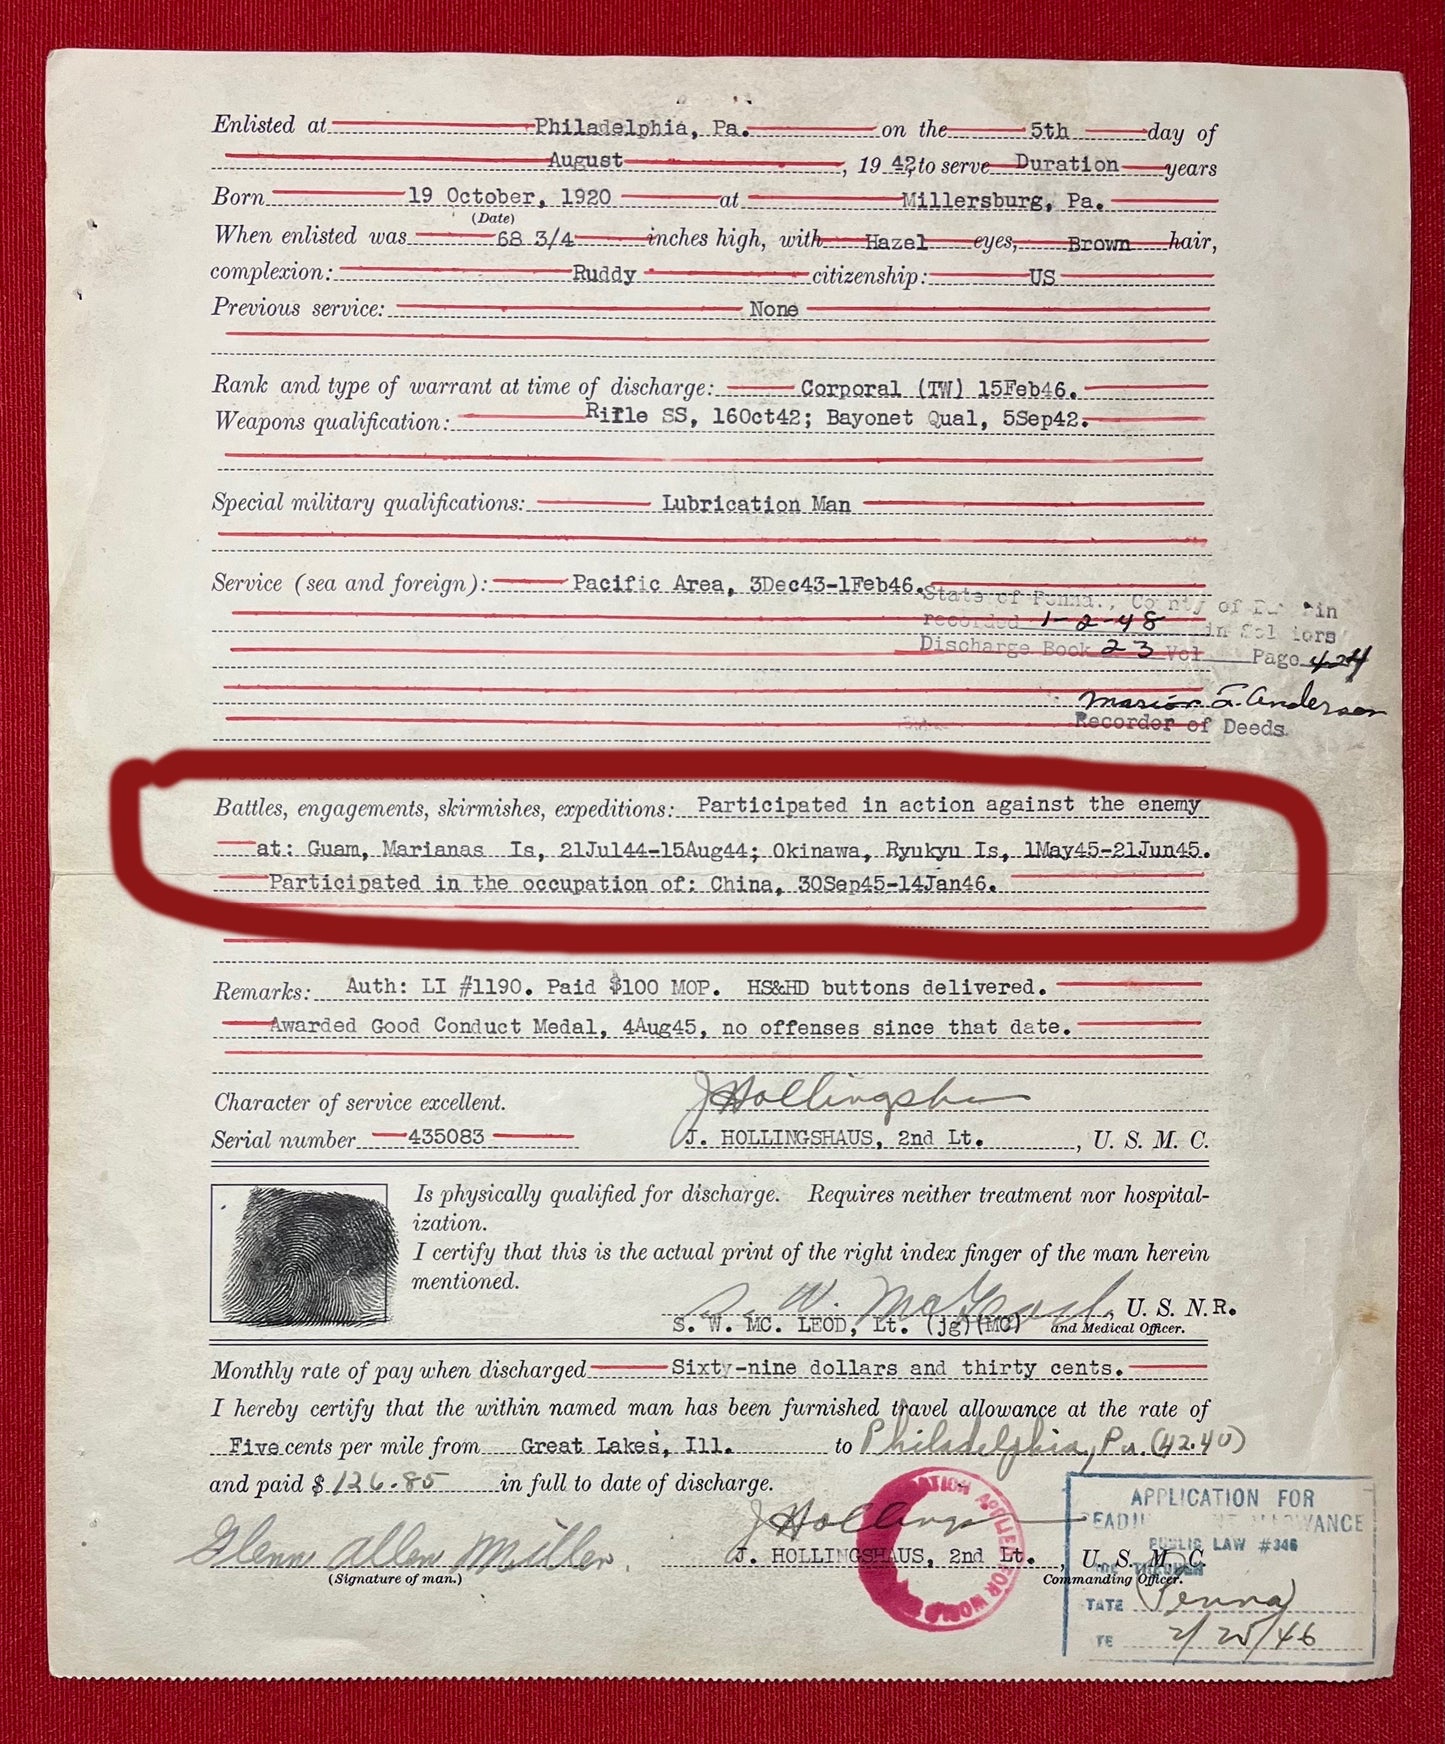 Enlisted at Philadelphia, Pa. on the 5th day of
August, 1942, to serve Duration years
Born 19 October, 1920 at Millersburg, Pa.
(Date)
When enlisted was 68 3/4 inches high, with Hazel eyes, Brown hair,
complexion: Ruddy citizenship: US
Previous service: None
Rank and type of warrant at time of discharge: Corporal (TW) 15Feb46.
Weapons qualification: Rifle SS, 16Oct42; Bayonet Qual, 5Sep42.
Special military qualifications: Lubrication Man
Service (sea and foreign): Pacific Area, 3Dec43-1Feb46.
State of Penna., County of
recorded 1-2-48 in
Discharge Book 23 Vol Page 424
Marion E. Anderson
Recorder of Deeds
Battles, engagements, skirmishes, expeditions: Participated in action against the enemy
at: Guam, Marianas Is, 21Jul44-15Aug44; Okinawa, Ryukyu Is, 1May45-21Jun45.
Participated in the occupation of: China, 30Sep45-14Jan46.
Remarks: Auth: LI #1190. Paid $100 MOP. HS&HD buttons delivered.
Awarded Good Conduct Medal, 4Aug45, no offenses since that date.
Character of service excellent.
Serial number 435083 J. HOLLINGSHAUS, 2nd Lt., U. S. M. C.
Is physically qualified for discharge. Requires neither treatment nor hospital-
ization.
I certify that this is the actual print of the right index finger of the man herein
mentioned.
S. W. MC. LEOD, Lt. (jg)(MC) U. S. N.R.
and Medical Officer.
Monthly rate of pay when discharged Sixty-nine dollars and thirty cents.
I hereby certify that the within named man has been furnished travel allowance at the rate of
Five cents per mile from Great Lakes, Ill. to Philadelphia, Pa. (42.40)
and paid $ 126.85 in full to date of discharge.
Glenn Allen Miller.
(Signature of man.)
J. HOLLINGSHAUS, 2nd Lt., U. S. M. C.
Commanding Officer.
APPLIED FOR WORLD
APPLICATION FOR
ALLOWANCE
PUBLIC LAW #346
THROUGH
TATE Penna
TE 2/25/46